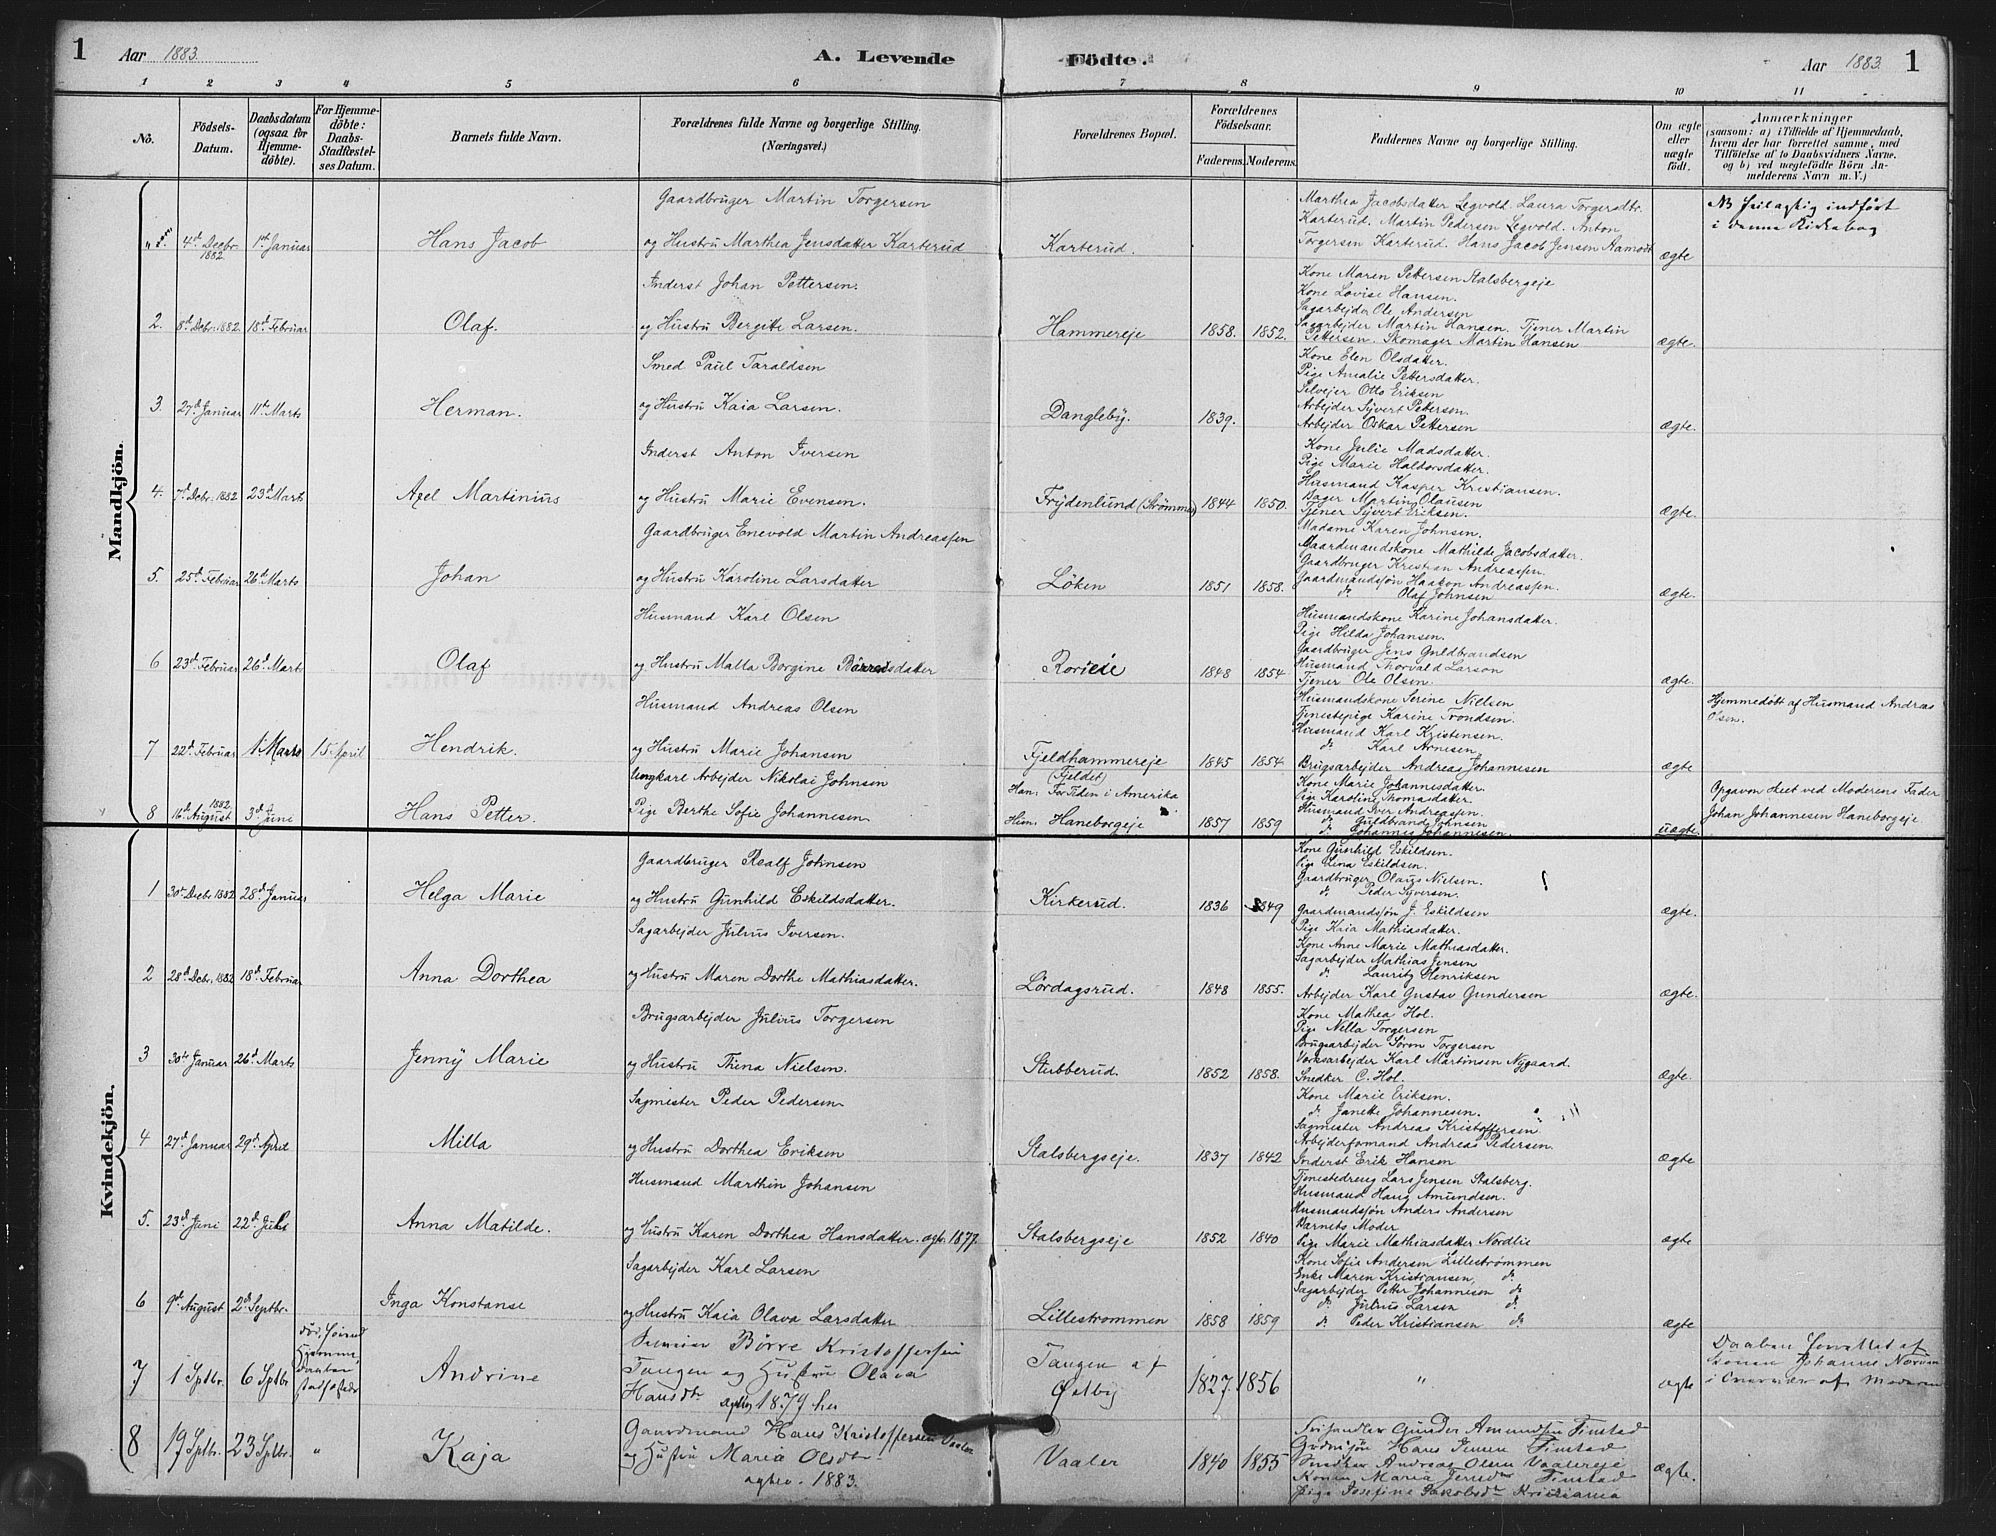 1 Aar 1883. A. Levende Födte. Aar 1883. 1
1 2 3 4 5 6 7 8 9 10 11
No.
Födsels-Datum.
Daabsdatum (ogsaa for Hjemme-döbte).
For Hjemme-döbte: Daabs-Stadfæstel-ses Datum.
Barnets fulde Navn.
Forældrenes fulde Navne og borgerlige Stilling.
(Næringsvei.)
Forældrenes Bopæl.
Forældrenes Födselsaar.
Faderens. Moderens.
Faddernes Navne og borgerlige Stilling.
Om ægte eller uægte födt.
Anmærkninger
(saasom: a) i Tilfælde af Hjemmedaab, hvem der har forrettet samme, med Tilföielse af to Daabsvidners Navne, og b) ved uægtefödte Börn Anmelderens Navn m. V.)
Mandkjön.
Gaardbruger Martin Torgersen
4d. Decbr. 1882 1st Januar Hans Jacob og Hustru Marthea Jensdatter Karterud Karterud. ægte
Marthea Jacobsdatter Legvold. Laura Torgersdtr.
Karterud. Martin Pedersen Legvold. Anton
Torgersen Karterud. Hans Jacob Jensen Aamodt
NB feilagtig indført
i denne Kirkebog
Inderst Johan Pettersen.
2. 8d. Debr. 1882. 18d. Februar Olaf. og Hustru Bergitte Larsen. Hammereje 1858. 1852. ægte.
Kone Maren Pettersen Stalsbergeje
Kone Lovise Hansen.
Sagarbejder Ole Andersen
Sagarbejder Martin Hansen. Tjener Martin
Pettersen. Skomager Martin Hansen
Smed Paul Taraldsen
3. 27d. Januar 11te Marts Herman. og Hustru Kaia Larsen. Dangleby. 1839. ægte.
Kone Elen Olsdatter.
Pige Amalie Pettersdatter.
Selvejer Otto Eriksen
Arbejder Syvert Pettersen.
Arbejder Oskar Pettersen
Inderst Anton Iversen
4. 7d. Debr. 1882 23d. Marts Axel Martinius og Hustru Marie Evensen. Frydenlund (Strømmen) 1844 1850. ægte.
Kone Julie Madsdatter.
Pige Marie Halvorsdatter.
Husmand Kasper Kristiansen.
Bager Martin Olausen
Tjener Syvert Eriksen.
Gaardbruger Enevold Martin Andreassen
5. 25d. Februar 26d. Marts Johan og Hustru Karoline Larsdatter Löken 1851 1858. ægte.
Madame Karen Johnsen.
Gaardmandskone Mathilde Jacobsdatter.
Gaardbruger Kristian Andreassen.
Gaardmandssøn Haakon Andreassen.
do. Olaf Johnsen
Husmand Karl Olsen
6 23d. Februar 26d. Marts Olaf og Hustru Malla Borgine Børresdatter 1848 1854 ægte.
Husmandskone Karine Johansdatter.
Pige Hilda Johansen.
Gaardbruger Jens Guldbrandsen
Husmand Thorvald Larson
Tjener Ole Olsen.
Husmand Andreas Olsen
7 22d. Februar 1. Marts 15 April Hendrik. og Hustru Marie Johansen Fjeldhammereje (Fjeldet) 1845 1854 ægte
Husmandskone Serine Nielsen
Tjenestepige Karine Trondsen.
Husmand Karl Kristensen.
do. Karl Arnesen
Brugsarbejder Andreas Johannesen
Hjemmedøbt af Husmand Andreas
Olsen.
Ungkarl Arbejder Nikolai Johnsen
8 16d. August 1882. 3d. Juni Hans Petter. Pige Berthe Sofie Johannesen
Han: For Tiden i Amerika
Hun: Haneborgeje 1857 1859 uægte
Kone Marie Johannesdatter.
Pige Karoline Thomasdatter.
Husmand Iver Andreasen.
do. Guldbrand Johnsen
do. Johannes Johannesen.
Opgaven skeet ved Moderens Fader
Johan Johannesen Haneborgeje.
Kvindekjön.
Gaardbruger Realf Johnsen
1 30te Decbr. 1882 28d. Januar Helga Marie og Hustru Gunhild Eskildsdatter. Kirkerud. 1836 1849 ægte.
Kone Gunhild Eskildsen.
Pige Lina Eskildsen.
Gaardbruger Olaus Nielsen.
do. Peder Syversen.
Gaardmandssøn J. Eskildsen
Sagarbejder Julius Iversen.
2 28d. Debr. 1882 18d. Februar Anna Dorthea og Hustru Maren Dorthe Mathiasdatter. Lördagsrud. 1848 1855. ægte.
Pige Kaia Mathiasdatter.
Kone Anne Marie Mathiasdatter.
Sagarbejder Mathias Jensen
do. Lauritz Henriksen
Arbejder Karl Gustav Gundersen
Brugsarbejder Julius Torgersen
3 30te Januar 26d. Marts Jenny Marie og Hustru Thina Nielsen. Stubberud. 1852 1858. ægte.
Kone Mathea Hol.
Pige Nilla Torgersen
Brugsarbejder Søren Torgersen
Værksarbejder Karl Martinsen Nygaard.
Snedker C. Hol.
Sagmester Peder Pedersen
4 27d. Januar 29d. April Milla og Hustru Dorthea Eriksen Stalsbergseje. 1837 1842 ægte
Kone Marie Eriksen.
do. Janette Johannesen.
Sagmester Andreas Kristoffersen
Arbejderformand Andreas Pedersen.
Inderst Erik Hansen
Husmand Marthin Johansen
5. 23d. Juni 22d. Juli Anna Matilde. og Hustru Karen Dorthea Hansdatter. ægtv. 1877. Stalsbergseje 1852 1840 ægte
Tjenestedreng Lars Jensen Stalsberg.
Husmand Hans Amundsen.
Husmandssøn Anders Andersen
Barnets Moder
Pige Marie Mathiasdatter Nordlie
Sagarbejder Karl Larsen
6 9d. August 2d. Septbr. Inga Konstanse og Hustru Kaia Olava Larsdatter Lillestrømmen 1858 1859 ægte
Kone Sofie Andersen Lillestrømmen
Enke Maren Kristiansen, do.
Sagarbejder Petter Johannesen do.
do. Julius Larsen do.
do. Peder Kristiansen do.
7 1 Sptbr. 6 Sptbr. død førend Hjemmedaaben stadfæstedes Andrine
Børre Kristoffersen
Tangen og Hustru Olava
Hansdtr. ægtev 1874 her
Tangen af
Østby 1827. 1856 " ægte
Daaben forrettet af
Konen Johanne
i Overvær af Moderen
8 19 Sptbr. 23 Sptbr. " Kaja
Gaardmand Hans Kristoffersen Vaaler
og Hustru Maria Olsdtr.
ægtev. 1883. Vaaler 1840 1855 ægte.
Gunder Amundsen Finstad
Hans Jensen Finstad
Andreas Olsen Vaalereje
Konen Maria Jensdtr Finstad
Pige Josefine Jakobsdtr Kristiania